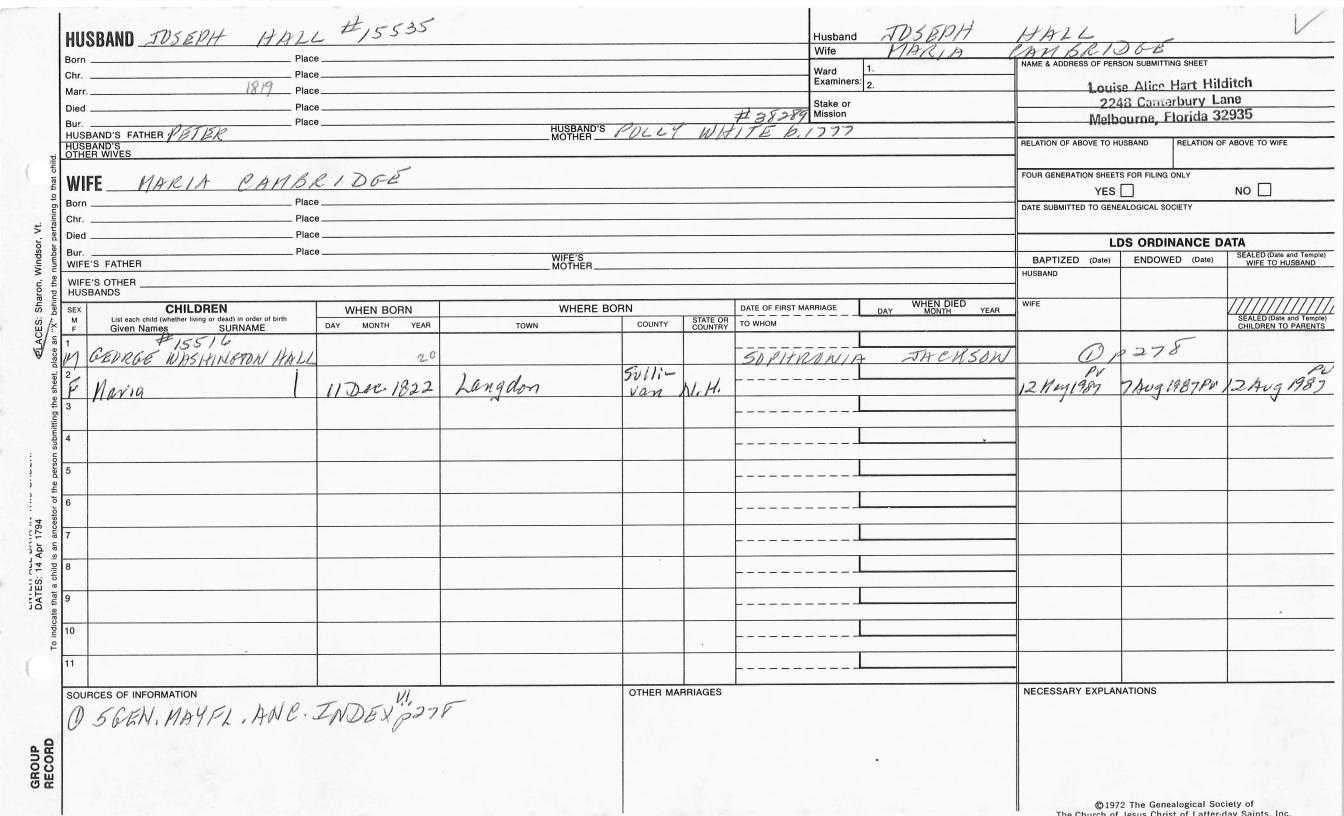 HUSBAND JOSEPH HALL #15535
Born Place
Chr. Place
Marr. 1819 Place
Died Place
Bur. Place
#38289
HUSBAND'S FATHER PETER HUSBAND'S MOTHER POLLY WHITE b.1777
HUSBAND'S OTHER WIVES
WIFE MARIA CAMBRIDGE
Born Place
Chr. Place
Died Place
Bur. Place
WIFE'S FATHER WIFE'S MOTHER
WIFE'S OTHER HUSBANDS
Husband JOSEPH HALL
Wife MARIA CAMBRIDGE
Ward Examiners: 1.
2.
Stake or Mission
NAME & ADDRESS OF PERSON SUBMITTING SHEET
Louise Alice Hart Hilditch
2248 Canterbury Lane
Melbourne, Florida 32935
RELATION OF ABOVE TO HUSBAND RELATION OF ABOVE TO WIFE
FOUR GENERATION SHEETS FOR FILING ONLY
YES NO
DATE SUBMITTED TO GENEALOGICAL SOCIETY
LDS ORDINANCE DATA
BAPTIZED (Date) ENDOWED (Date) SEALED (Date and Temple) WIFE TO HUSBAND
HUSBAND
WIFE
SEALED (Date and Temple) CHILDREN TO PARENTS
SEX M F
CHILDREN
List each child (whether living or dead) in order of birth
Given Names SURNAME
WHEN BORN
DAY MONTH YEAR
WHERE BORN
TOWN COUNTY STATE OR COUNTRY
DATE OF FIRST MARRIAGE
TO WHOM
WHEN DIED
DAY MONTH YEAR
1 #15516
M GEORGE WASHINGTON HALL 20 SOPHRONIA JACKSON ① p 278
2
F Maria | 11 Dec 1822 Langdon Sullivan N.H. 12 May 1987 PV 7 Aug 1987 PV 12 Aug 1987 PV
3
4
5
6
7
8
9
10
11
SOURCES OF INFORMATION
① 5GEN. MAYFL. ANC. INDEX VI. p278
OTHER MARRIAGES
NECESSARY EXPLANATIONS
©1972 The Genealogical Society of
The Church of Jesus Christ of Latter-day Saints, Inc.
DATES: 14 Apr 1794
PLACES: Sharon, Windsor, Vt.
To indicate that a child is an ancestor of the person submitting the sheet, place an "X" behind the number pertaining to that child.
GROUP RECORD